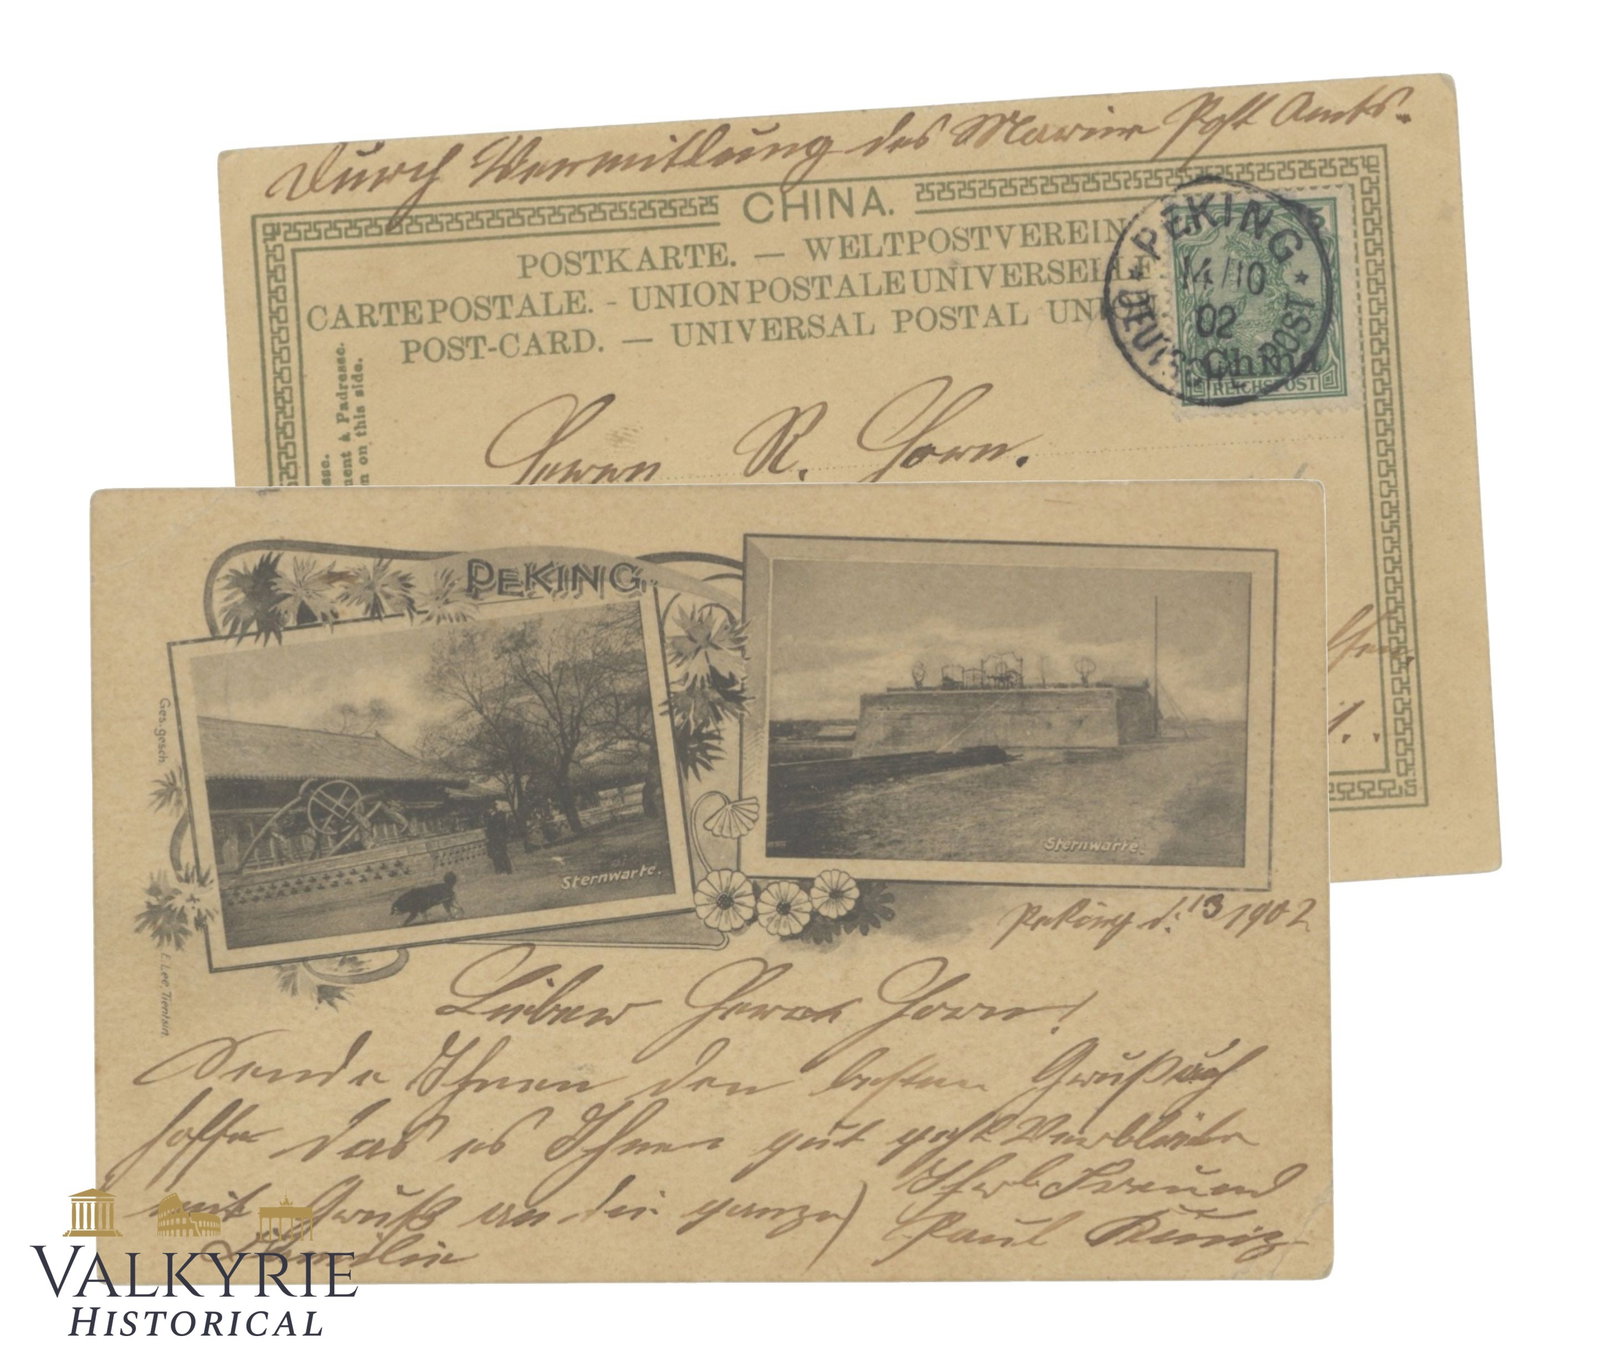 Durch Vermittlung des Marine Post Amts.
CHINA.
POSTKARTE. — WELTPOSTVEREIN
CARTE POSTALE. - UNION POSTALE UNIVERSELLE
POST-CARD. — UNIVERSAL POSTAL UN
PEKING
14/10
02
DEUTSCHE POST
5
China
REICHSPOST
ment à l'adresse.
n on this side.
Herrn R. Horn.
PEKING.
Ges. gesch.
Sternwarte.
Sternwarte.
E. Lee, Tientsin.
Peking d. 13 1902
Lieber Herr Horn!
Sende Ihnen den besten Gruß auch
hoffe das es Ihnen gut geht Verbleibe
mit Gruß an die ganze) Ihr Freund
Familie Paul
VALKYRIE
HISTORICAL